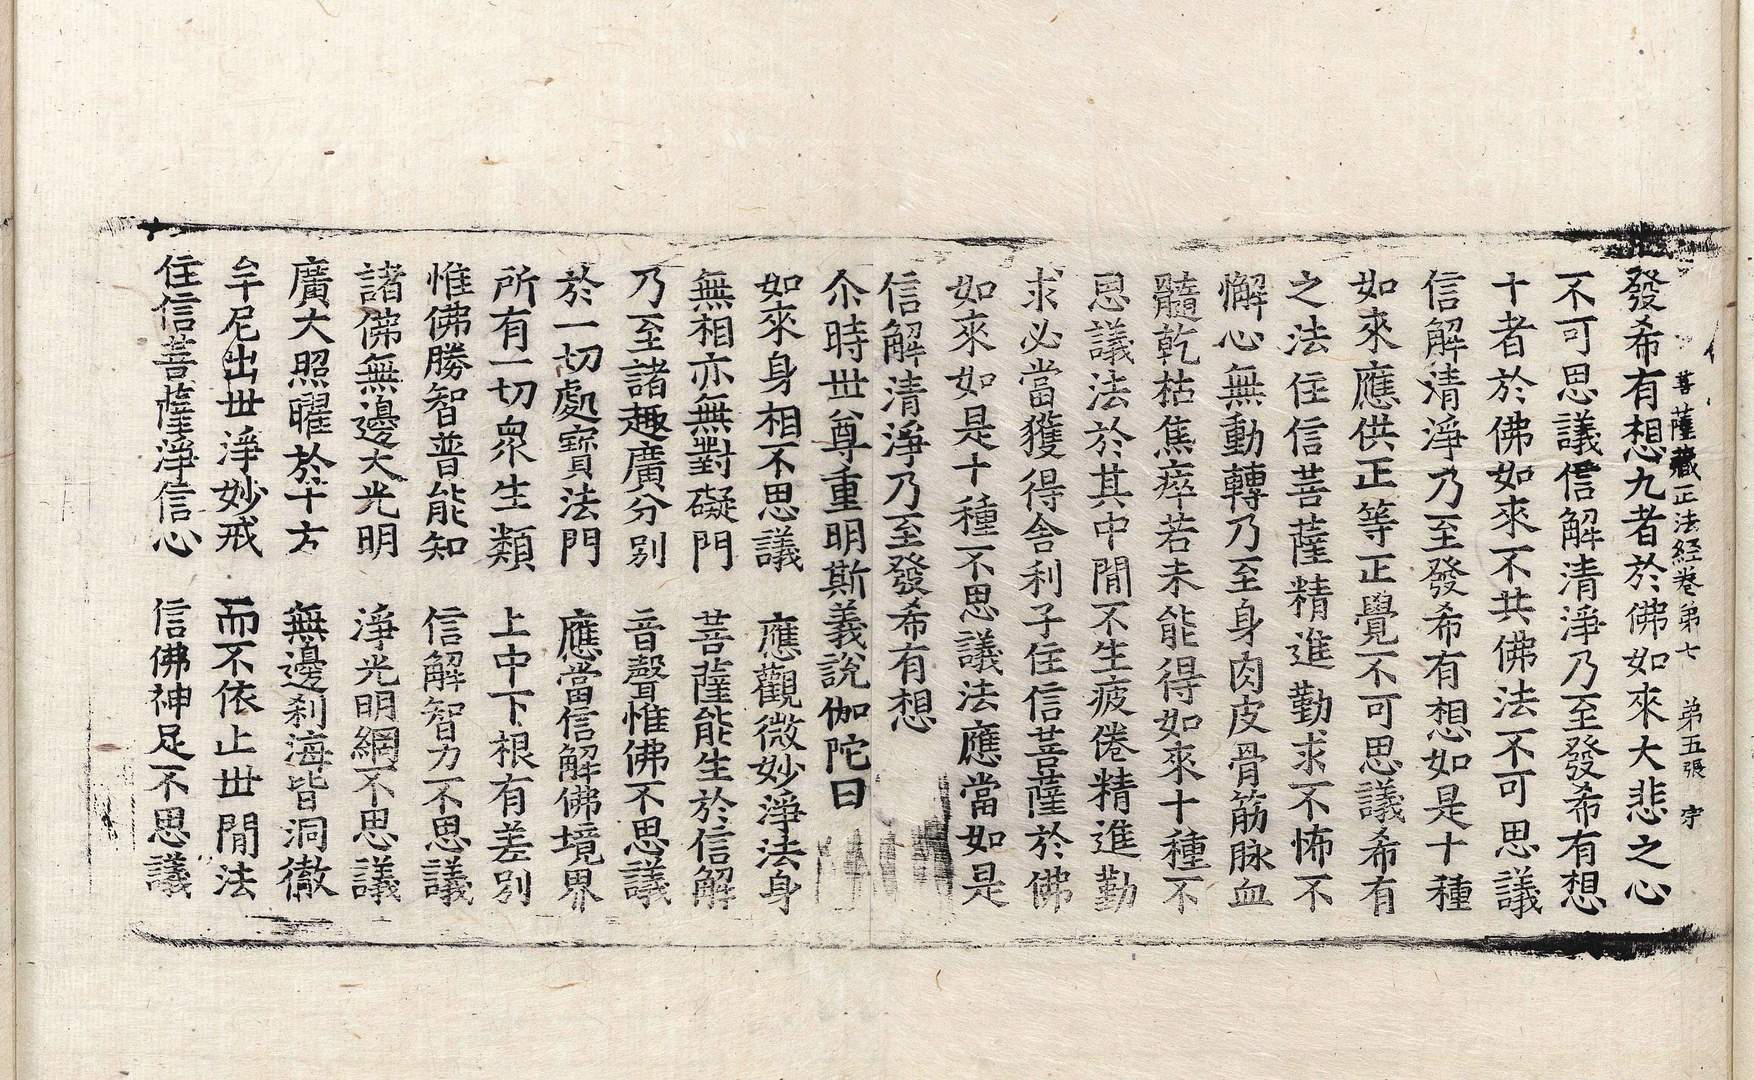 菩薩藏正法經卷第七 第五張 字
發希有想九者於佛如來大悲之心
不可思議信解清淨乃至發希有想
十者於佛如來不共佛法不可思議
信解清淨乃至發希有想如是十種
如來應供正等正覺不可思議希有
之法住信菩薩精進勤求不怖不
懈心無動轉乃至身肉皮骨筋脉血
髓乾枯焦瘁若未能得如來十種不
思議法於其中間不生疲倦精進勤
求必當獲得舍利子住信菩薩於佛
如來如是十種不思議法應當如是
信解清淨乃至發希有想
尒時世尊重明斯義說伽陀曰
如來身相不思議 應觀微妙淨法身
無相亦無對礙門 菩薩能生於信解
乃至諸趣廣分別 音聲惟佛不思議
於一切處寶法門 應當信解佛境界
所有一切衆生類 上中下根有差別
惟佛勝智普能知 信解智力不思議
諸佛無邊大光明 淨光明網不思議
廣大照曜於十方 無邊刹海皆洞徹
牟尼出世淨妙戒 而不依止世間法
住信菩薩淨信心 信佛神足不思議